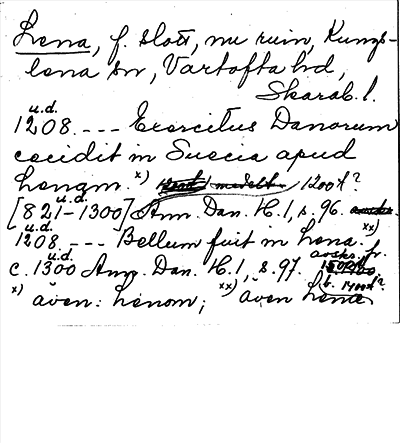 Lena, f. slott, nu ruin, Kungs-
lena sn, Vartofta hd,
Skarab. l.
u.d.
1208. --- Exercitus Danorum
cecidit in Suecia apud
Lengm. x) 1200t?
u.d.
[821-1300] Ann. Dan. H. 1, s. 96.
u.d. xx)
1208. --- Bellum fuit in Lena.
u.d. avskr. fr.
c. 1300 Ann. Dan. H. 1, s. 97.
b. 1400t?
x) även: Lenom; xx) även Lene